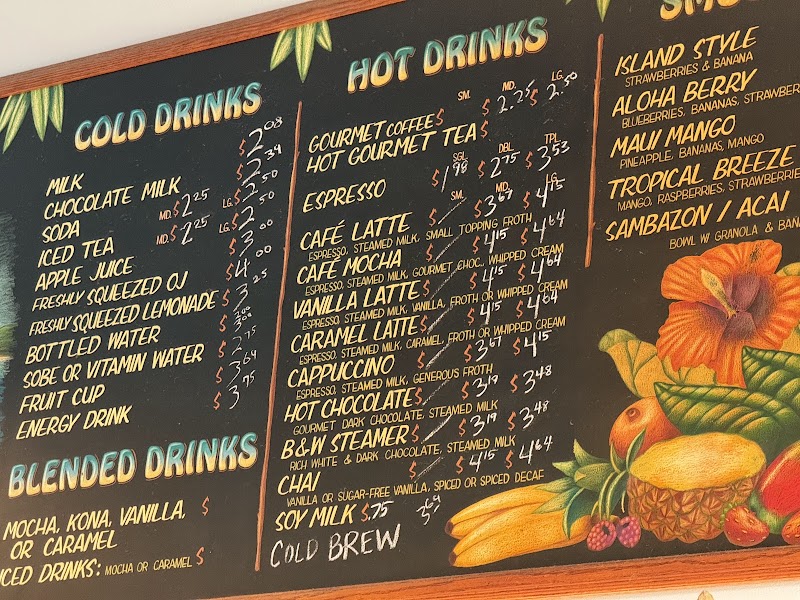 COLD DRINKS
MILK $2.08
CHOCOLATE MILK $2.39
SODA MD. $2.25 LG. $2.50
ICED TEA MD. $2.25 LG. $2.50
APPLE JUICE $3.00
FRESHLY SQUEEZED OJ $4.00
FRESHLY SQUEEZED LEMONADE $3.25
BOTTLED WATER $
SOBE OR VITAMIN WATER $2.75
FRUIT CUP $3.64
ENERGY DRINK $3.75
BLENDED DRINKS
MOCHA, KONA, VANILLA, $
OR CARAMEL
ICED DRINKS: MOCHA OR CARAMEL $
HOT DRINKS
SM. MD. LG.
GOURMET COFFEE $ $2.25 $2.50
HOT GOURMET TEA $
SGL. DBL. TPL.
ESPRESSO $1.98 $2.75 $3.53
SM. MD. LG.
CAFÉ LATTE $ $3.67 $4.15
ESPRESSO, STEAMED MILK, SMALL TOPPING FROTH
CAFÉ MOCHA $ $4.15 $4.64
ESPRESSO, STEAMED MILK, GOURMET CHOC, WHIPPED CREAM
VANILLA LATTE $ $4.15 $4.64
ESPRESSO, STEAMED MILK, VANILLA, FROTH OR WHIPPED CREAM
CARAMEL LATTE $ $4.15 $4.64
ESPRESSO, STEAMED MILK, CARAMEL, FROTH OR WHIPPED CREAM
CAPPUCCINO $ $3.67 $4.15
ESPRESSO, STEAMED MILK, GENEROUS FROTH
HOT CHOCOLATE $ $3.19 $3.48
GOURMET DARK CHOCOLATE, STEAMED MILK
B&W STEAMER $ $3.19 $3.48
RICH WHITE & DARK CHOCOLATE, STEAMED MILK
CHAI $ $4.15 $4.64
VANILLA OR SUGAR-FREE VANILLA, SPICED OR SPICED DECAF
SOY MILK $.75
COLD BREW
SMO
ISLAND STYLE
STRAWBERRIES & BANANA
ALOHA BERRY
BLUEBERRIES, BANANAS, STRAWBER
MAUI MANGO
PINEAPPLE, BANANAS, MANGO
TROPICAL BREEZE
MANGO, RASPBERRIES, STRAWBERRIE
SAMBAZON / ACAI
BOWL W/ GRANOLA & BAN